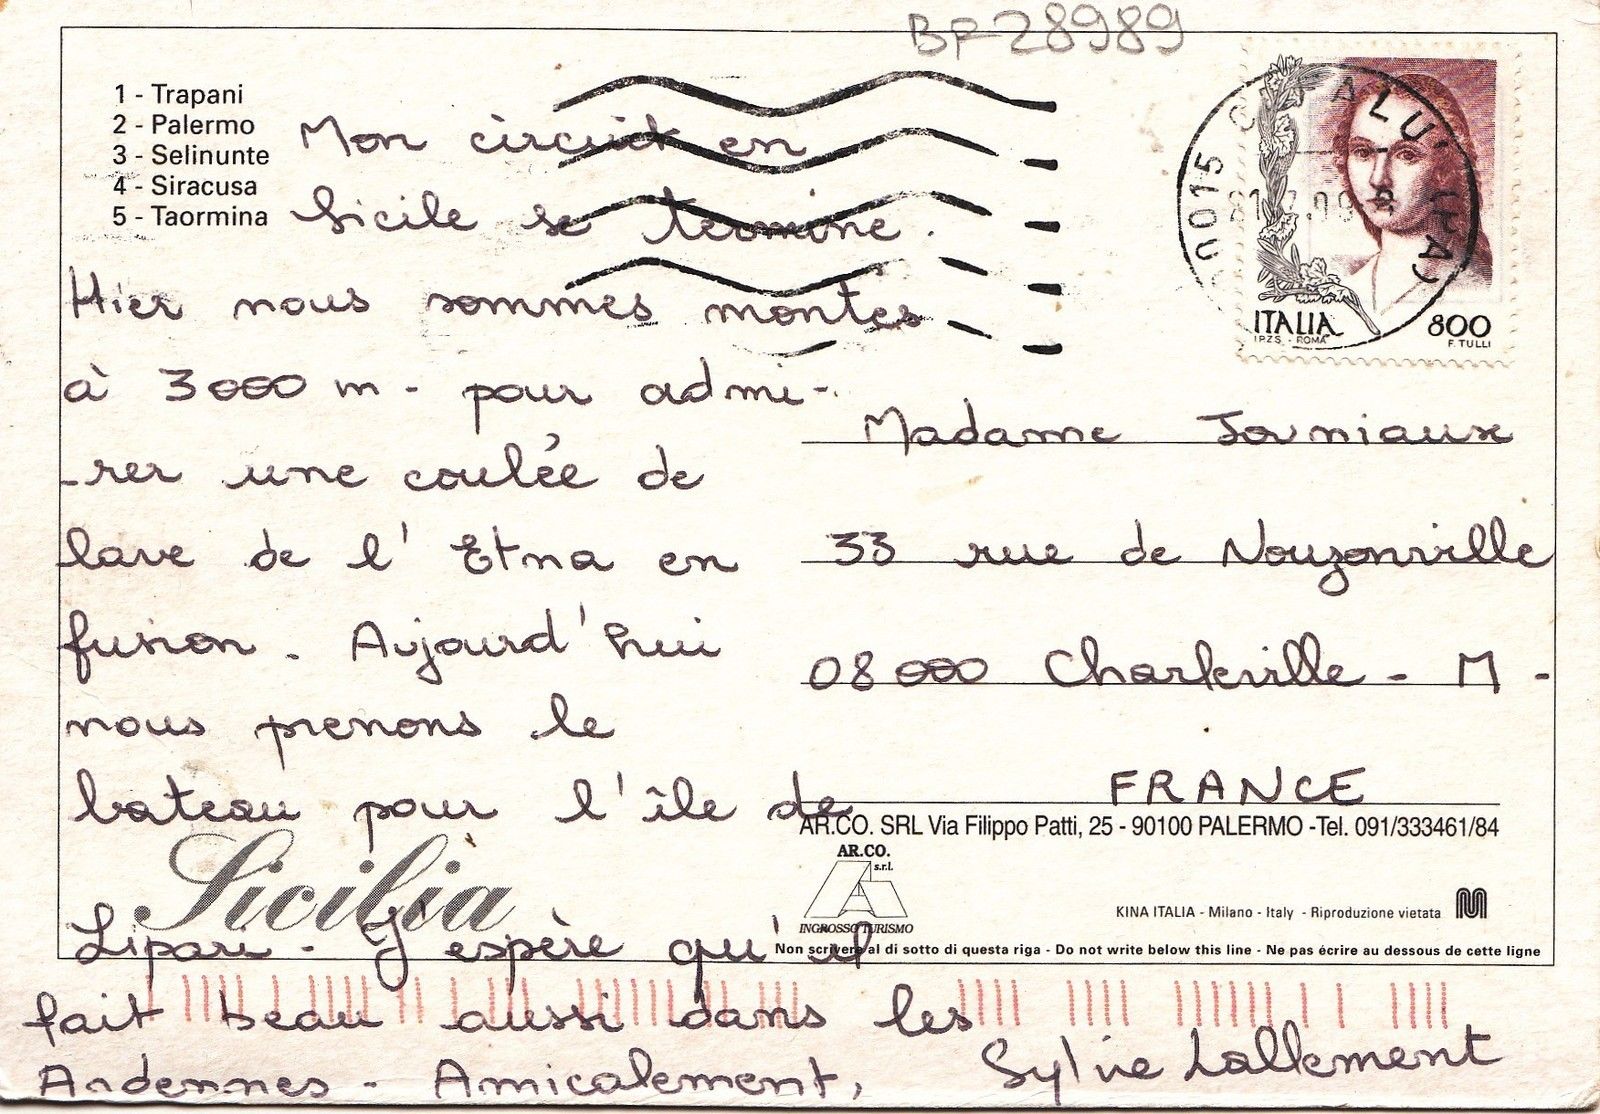 BF28989
1 - Trapani
2 - Palermo
3 - Selinunte
4 - Siracusa
5 - Taormina
Mon circuit en
Sicile se termine.
Hier nous sommes montés
à 3000 m - pour admi-
-rer une coulée de
lave de l'Etna en
fusion. Aujourd'hui
nous prenons le
bateau pour l'île de
Lipari - J'espère qu'il
fait beau aussi dans les
Ardennes - Amicalement,
Sylvie Lallement
Sicilia
ITALIA 800
I.P.Z.S. - ROMA F. TULLI
Madame Jorniaux
33 rue de Nouzonville
08000 Charleville - M -
FRANCE
AR.CO. SRL Via Filippo Patti, 25 - 90100 PALERMO -Tel. 091/333461/84
AR.CO.
s.r.l.
INGROSSO TURISMO
KINA ITALIA - Milano - Italy - Riproduzione vietata
Non scrivere al di sotto di questa riga - Do not write below this line - Ne pas écrire au dessous de cette ligne